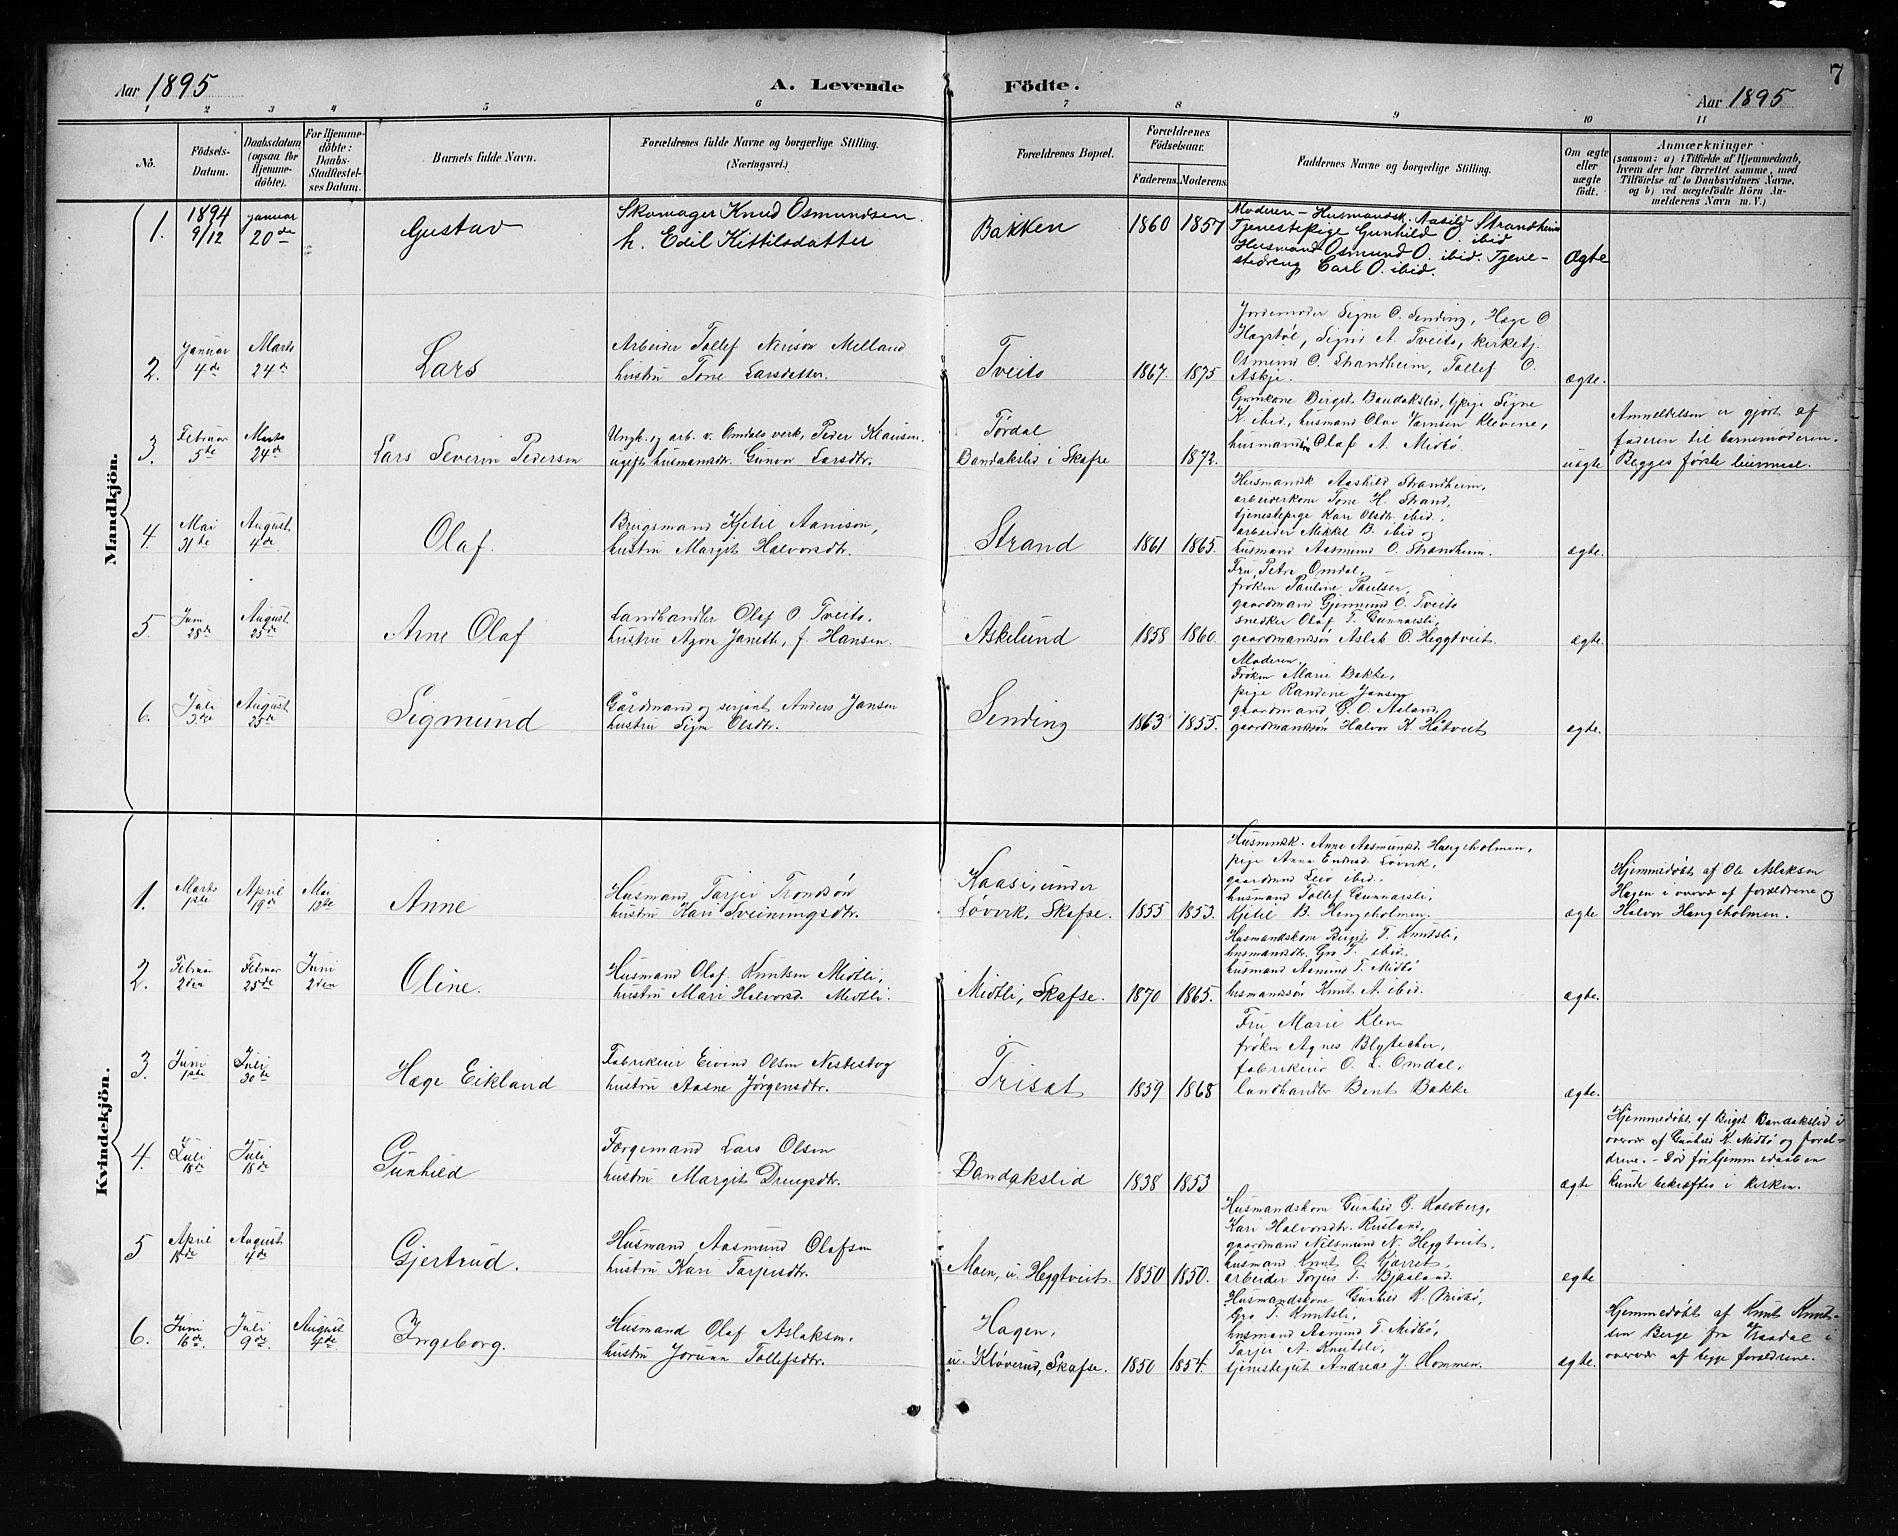 7
Aar 1895
A. Levende
Födte.
Aar 1895
1 2 3 4 5 6 7 8 9 10 11
No.
Födsels-
Datum.
Daabsdatum
(ogsaa for
Hjemme-
döbte).
For Hjemme-
döbte:
Daabs-
Stadfæstel-
ses Datum.
Barnets fulde Navn.
Forældrenes fulde Navne og borgerlige Stilling.
(Næringsvei.)
Forældrenes Bopæl.
Forældrenes
Födselsaar.
Faderens.
Moderens.
Faddernes Navne og borgerlige Stilling.
Om ægte
eller
uægte
födt.
Anmærkninger
(saasom: a) i Tilfælde af Hjemmedaab,
hvem der har forrettet samme, med
Tilföielse af to Daabsvidners Navne,
og b) ved uægtefödte Börn An-
melderens Navn m. V.)
Mandkjön.
1.
1894
9/12
Januar
20de
Gustav
Skomager Knud Osmundsen
h. Edil Kittilsdatter
Bakken
1860
1857
Moderen - Husmandsk. Aasild Strandheim
Tjenestepige Gunhild O. ibid
Husmand Osmund O. ibid. Tjene-
stedreng Carl O. ibid.
Ægte
2.
Januar
4de
Marts
24de
Lars
Arbeider Tollef Nerison Melland
hustru Tone Larsdatter.
Tveito
1867.
1875
Jordemoder Signe O. Sending, Hæge O
Hogstøl, Signe A. Tveito, kirketj.
Osmund O. Strandheim, Tollef O.
Askje.
ægte.
3.
Februar
5te
Marts
24de
Lars Severin Pederson
Ungk. og arb. v. Omdals verk, Peder Klausen.
ugift husmandsdtr. Gunvor Larsdtr.
Tørdal
Bandakslid i Skafse
1872.
Birgit Bandakslid, pige Signe
K. ibid, husmand Olav Klevene,
husmandsøn Olaf A. Midbø
uægte
Anmeldelsen er gjort af
faderen til barnemoderen.
Begges første leiermaal.
4.
Mai
31te
August
4de
Olaf.
Brugsmand Kjetil Aanison,
hustru Margit Halvorsdtr.
Strand
1861
1865.
Husmandsk Aashild Strandheim,
arbeiderkone Tone H. Strand,
tjenestepige Kari Olsdtr ibid.,
arbeider Mikkel B. ibid og
husmand Aasmund O. Strandheim.
ægte.
5.
Juni
28de
August
25de
Arne Olaf
Landhandler Olaf O. Tveito.
hustru Janeth, f. Hansen.
Askelund
1858
1860.
Fru Petra Omdal,
frøken Pauline Paulsen,
gaardmand Gjermund O. Tveito
snedker Olaf T. Gunnarsli,
gaardmandsøn Aslak O. Heggtveit.
ægte.
6.
Juli
3die
August
25de
Sigmund
Gårdmand og serjant Anders Jansen
hustru Signe Olsdtr.
Sending
1863
1855.
Moderen,
Frøken Marie Bakke,
pige Randine Jansen
gaardmand G. O. Aaland,
gaardmandsøn Halvor K. Håtveit
ægte.
Kvindekjön.
1.
Marts
1ste
April
19de
Mai
12te
Anne
Husmand Tarjei Trondsøn
hustru Kari Sveiningsdtr.
Kaasi, under
Løvik, Skafse.
1855
1853.
Husmndsk. Anne Aasmundsd. Hængeholmen,
pige Anna Endresd. Løvik,
gaardmand Leiv ibid.
husmand Tollef Gunnarsli,
Kjetil B. Hengeholmen.
ægte
Hjemmedøbt af Ole Aslaksen
Hagen i overvær af forældrene og
Halvor Hangeholmen.
2.
Februar
2den
Februar
25de
Juni
2den
Oline.
Husmand Olaf Knutsen Midtli,
hustru Mari Halvorsd. Midtli.
Midtli, Skafse.
1870
1865.
Husmandskone Birgit T. Knutsli,
husmandsdtr. Gro T. ibid.
husmand Aanund T. Midbø
husmandssøn Knut A. ibid.
ægte.
3.
Juni
1ste
Juli
30te
Hæge Eikland
Fabrikeier Eivind Olsen Nestestog
hustru Aasne Jørgensdtr.
Trisæt
1859
1868
Fru Marie Kleven
frøken Agnes Blytecher,
fabrikeier O. L. Omdal,
landhandler Bent Bakke
ægte.
4.
Juli
18de
Juli
18de
Gunhild
Færgemand Lars Olsen
hustru Margit Drengsdtr.
Bandakslid
1838
1853
ægte
Hjemmedøbt af Birgit Bandakslid i
overvær af Gunhild K. Midbø og foræl-
drene. - Død før hjemmedaaben
kunde bekræftes i kirken.
5
April
18de
August
4de
Gjertrud.
Husmand Aasmund Olafsen
hustru Kari Tarjeisdtr.
Moen, u. Heggtveit.
1850
1850.
Husmandskone Gunhild G. Kaldberg,
Kari Halvorsdtr. Rusland,
gaardmand Nilsmund N. Heggtveit,
husmand Knut O. Kjørret,
arbeider Torjus T. Bjaaland.
egte
6.
Juni
16de
Juli
9de
August
4de
Ingeborg.
Husmand Olaf Aslaksen.
hustru Jorunn Tollefsdtr.
Hagen,
u. Kløverud, Skafse.
1850
1854.
Husmandskone Gunhild K. Midbø,
Gro T. Knutsli,
husmand Aanund T. Midbø,
Tarjei A. Knutsli,
tjenestegut Andreas J. Hommen.
ægte.
Hjemmedøbt af Knut Knut-
sen Berge fra Vraadal i
overvær af begge forældrene.